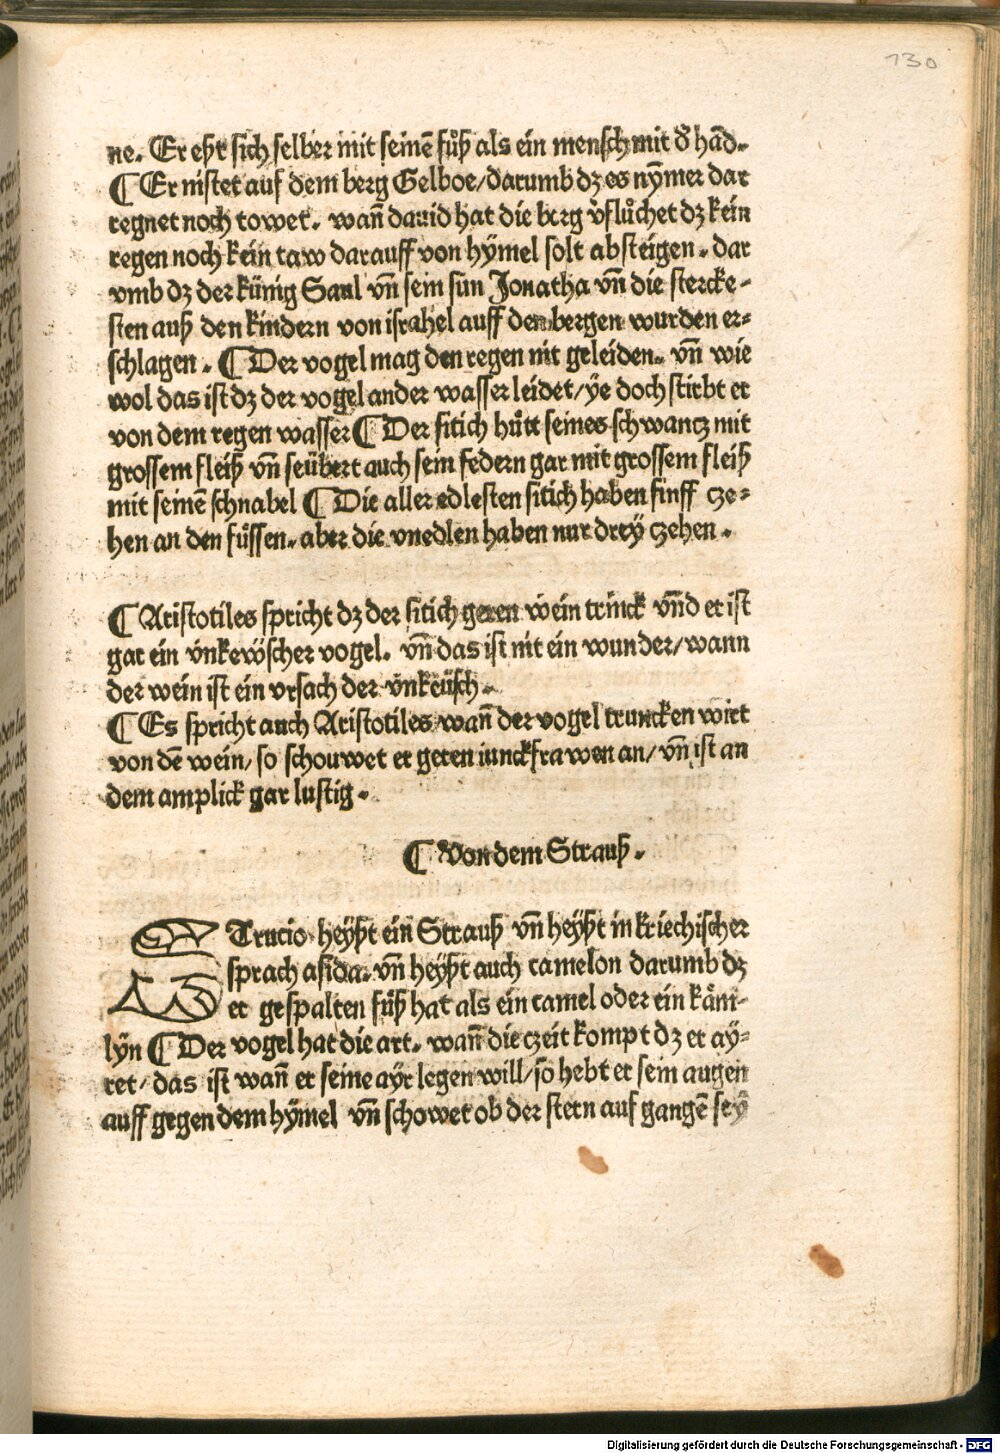 130
ne. Er eßt sich selber mit seinē fůß als ein mensch mit ð hād.
¶ Er nistet auf dem berg Gelboe/darumb dz es nÿmer dar
regnet noch towet. wañ dauid hat die berg v̉flůchet dz kein
regen noch kein taw darauff von hÿmel solt absteigen. dar
vmb dz der künig Saul vñ sein sun Jonatha vñ die stercke-
sten auß den kindern von israhel auff den bergen wurden er-
schlagen. ¶ Der vogel mag den regen nit geleiden. vñ wie
wol das ist dz der vogel ander wasser leidet/ÿe doch stirbt er
von dem regen wasser ¶ Der sitich hůtt seines schwantz mit
grossem fleiß vñ seübert auch sein federn gar mit grossem fleiß
mit seinē schnabel ¶ Die aller edlesten sitich haben finff cze-
hen an den füssen. aber die vnedlen haben nur dreÿ czehen.
¶ Aristotiles spricht dz der sitich geren wein trinck vñd er ist
gar ein vnkewscher vogel. vñ das ist nit ein wunder/wann
der wein ist ein vrsach der vnkeüsch.
¶ Es spricht auch Aristotiles wañ der vogel truncken wirt
von dē wein/so schouwet er geren iunckfrawen an/vñ ist an
dem amplick gar lustig.
¶ Von dem Strauß.
STrucio heÿßt ein Strauß vñ heÿßt in kriechischer
sprach asida. vñ heÿßt auch camelon darumb dz
er gespalten füß hat als ein camel oder ein käm-
lÿn ¶ Der vogel hat die art. wañ die czeit kompt dz er aÿ-
ret/das ist wañ er seine aÿr legen will/so hebt er sein augen
auff gegen dem hÿmel vñ schowet ob der stern auf gangē seÿ
Digitalisierung gefördert durch die Deutsche Forschungsgemeinschaft - DFG